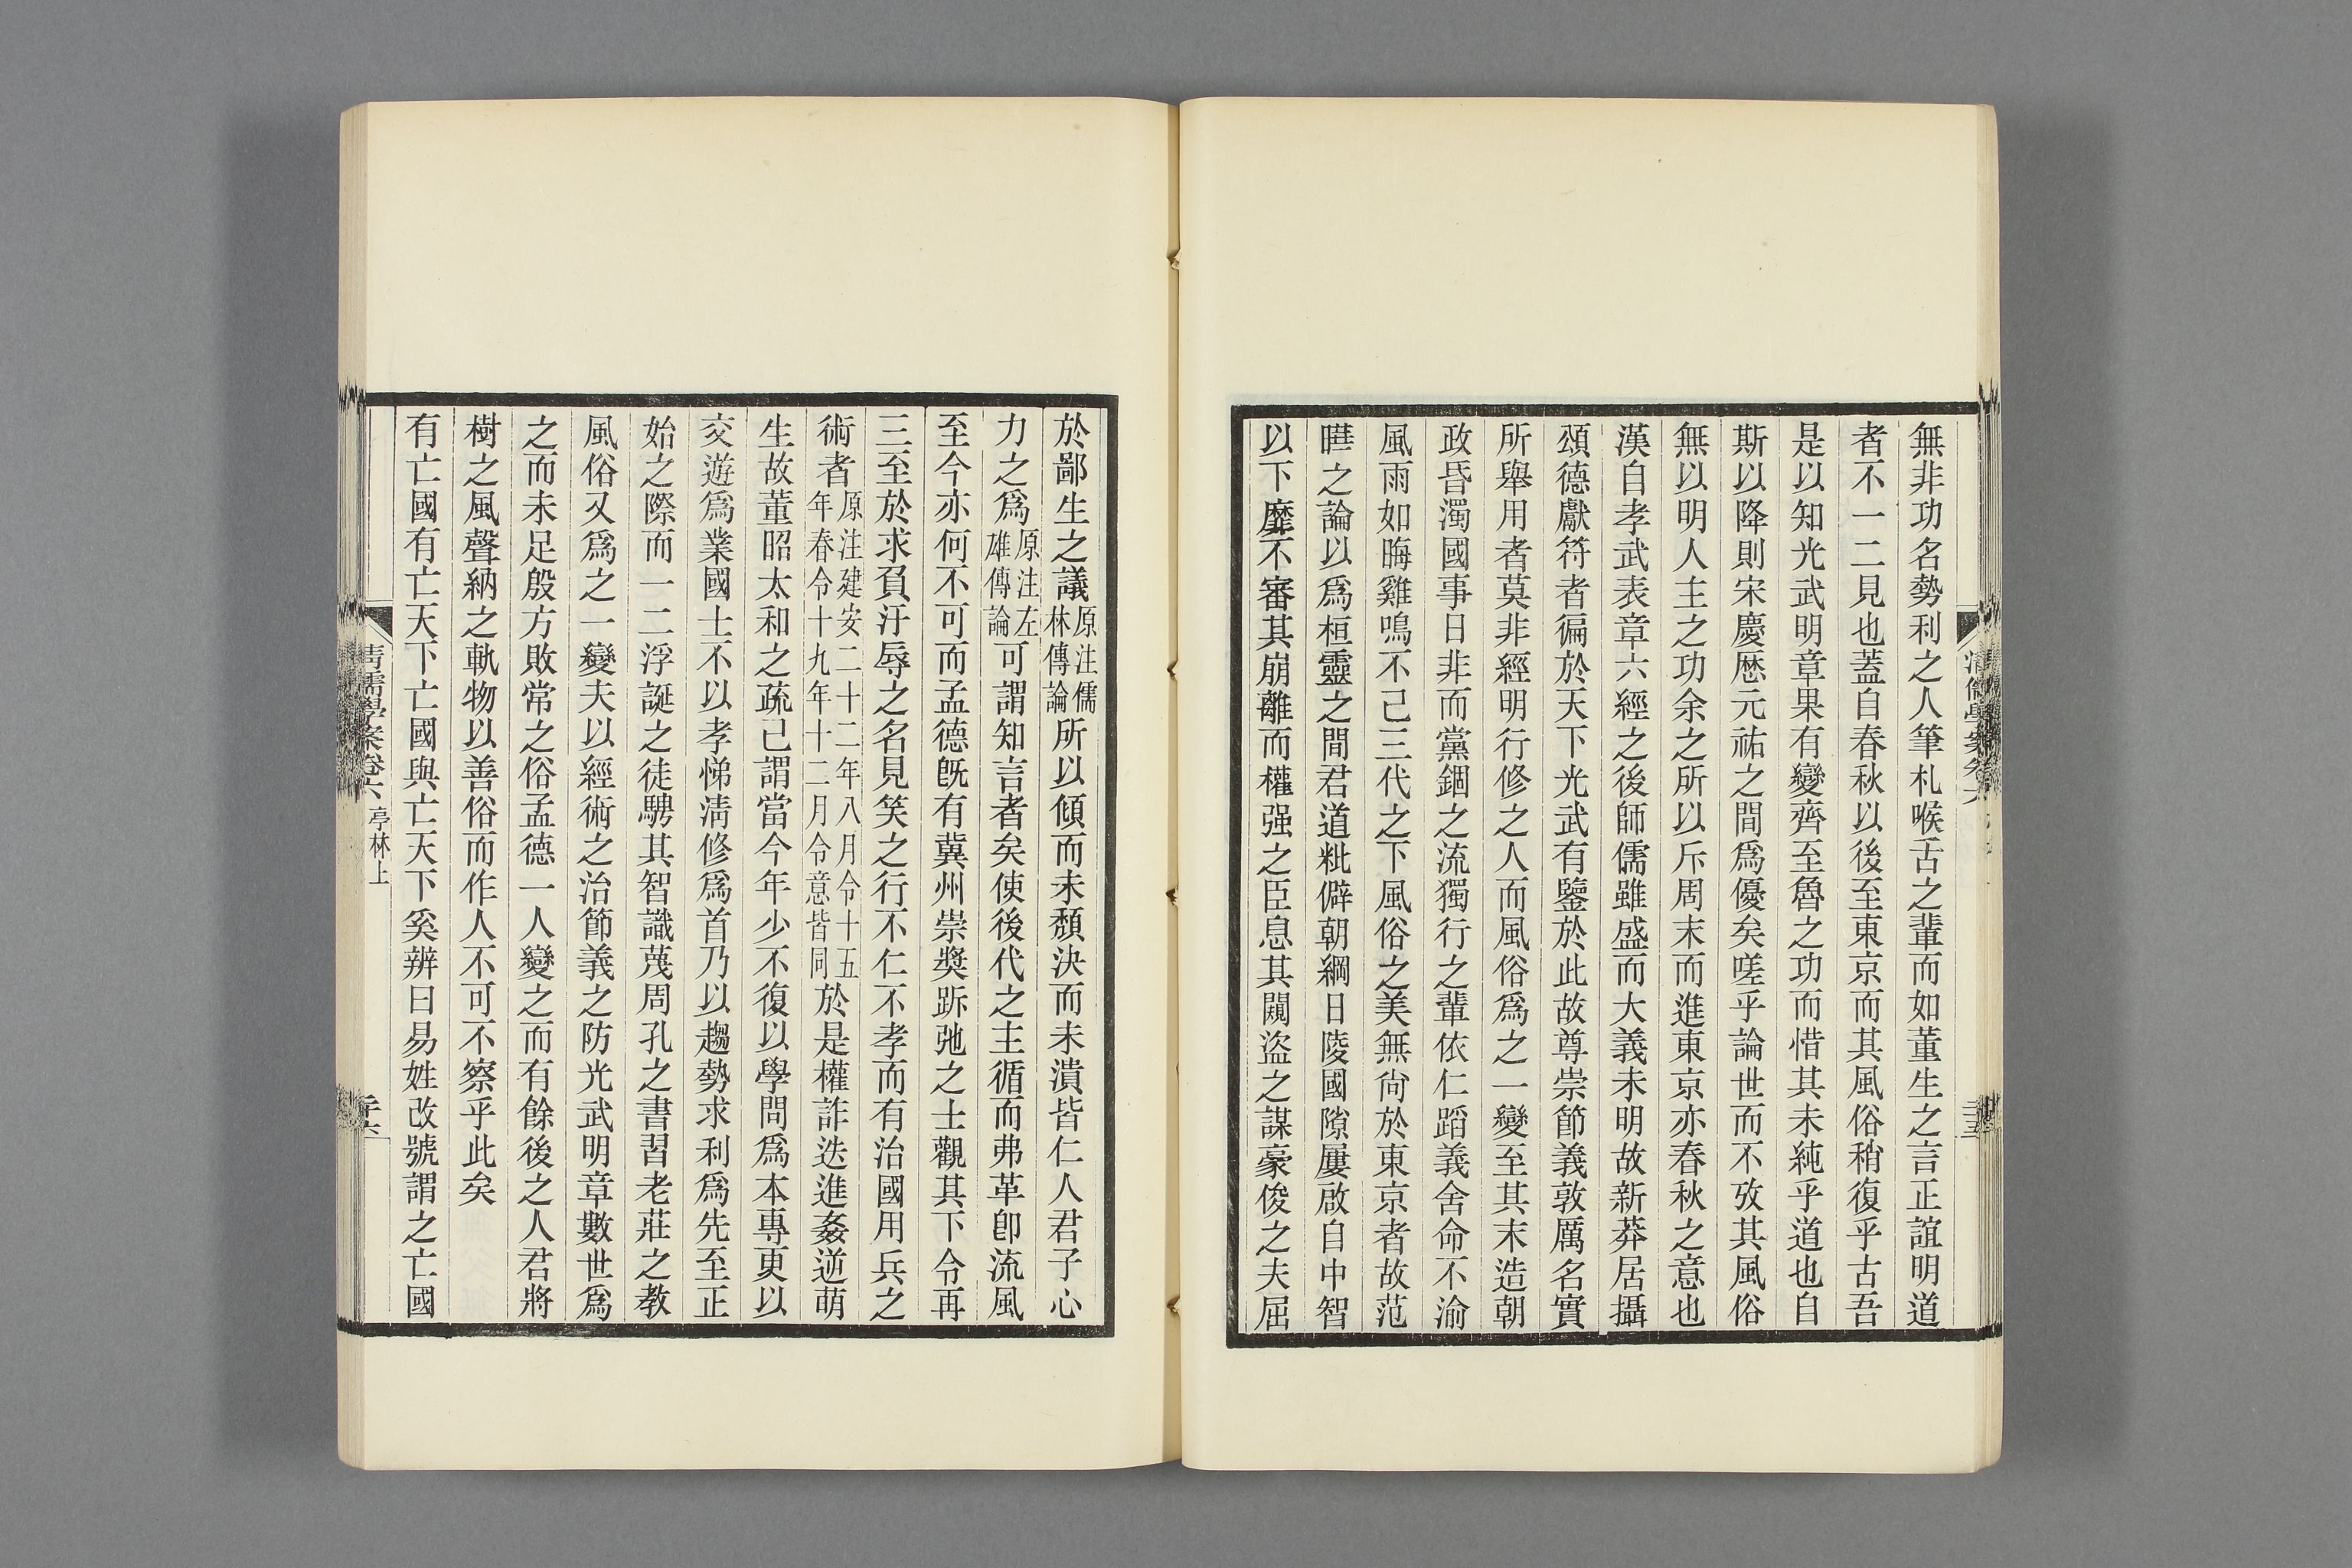 無非功名勢利之人筆札喉舌之輩而如董生之言正誼明道
者不一二見也蓋自春秋以後至東京而其風俗稍復乎古吾
是以知光武明章果有變齊至魯之功而惜其未純乎道也自
斯以降則宋慶歷元祐之間爲優矣嗟乎論世而不攷其風俗
無以明人主之功余之所以斥周末而進東京亦春秋之意也
漢自孝武表章六經之後師儒雖盛而大義未明故新莽居攝
頌德獻符者徧於天下光武有鑒於此故尊崇節義敦厲名實
所舉用者莫非經明行修之人而風俗爲之一變至其末造朝
政昏濁國事日非而黨錮之流獨行之輩依仁蹈義舍命不渝
風雨如晦雞鳴不已三代之下風俗之美無尙於東京者故范
曄之論以爲桓靈之間君道粃僻朝綱日陵國隙屢啟自中智
以下靡不審其崩離而權强之臣息其闚盜之謀豪俊之夫屈
於鄙生之議原注儒林傳論所以傾而未頹決而未潰皆仁人君子心
力之爲原注左雄傳論可謂知言者矣使後代之主循而弗革卽流風
至今亦何不可而孟德旣有冀州崇獎跅弛之士觀其下令再
三至於求負汙辱之名見笑之行不仁不孝而有治國用兵之
術者原注建安二十二年八月令十五年春令十九年十二月令意皆同於是權詐迭進姦逆萌
生故董昭太和之疏已謂當今年少不復以學問爲本專更以
交遊爲業國士不以孝悌淸修爲首乃以趨勢求利爲先至正
始之際而一二浮誕之徒騁其智識蔑周孔之書習老莊之教
風俗又爲之一變夫以經術之治節義之防光武明章數世爲
之而未足毀方敗常之俗孟德一人變之而有餘後之人君將
樹之風聲納之軌物以善俗而作人不可不察乎此矣
有亡國有亡天下亡國與亡天下奚辨曰易姓改號謂之亡國
淸儒學案卷六 亭林上